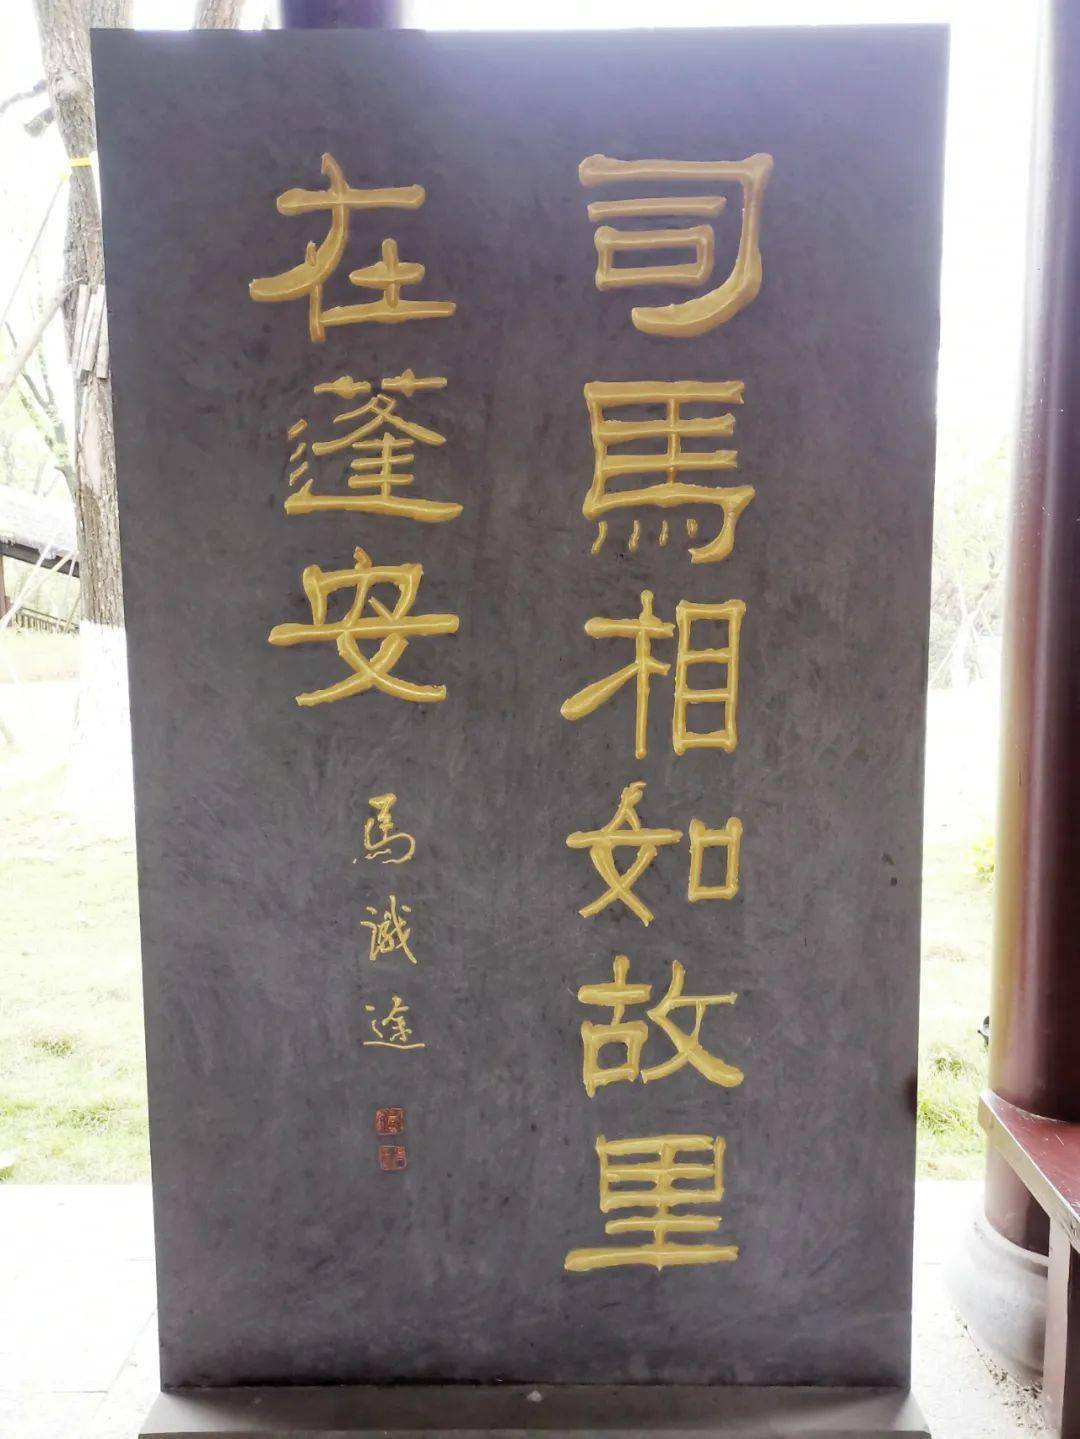 司馬相如故里
在蓬安
馬識途